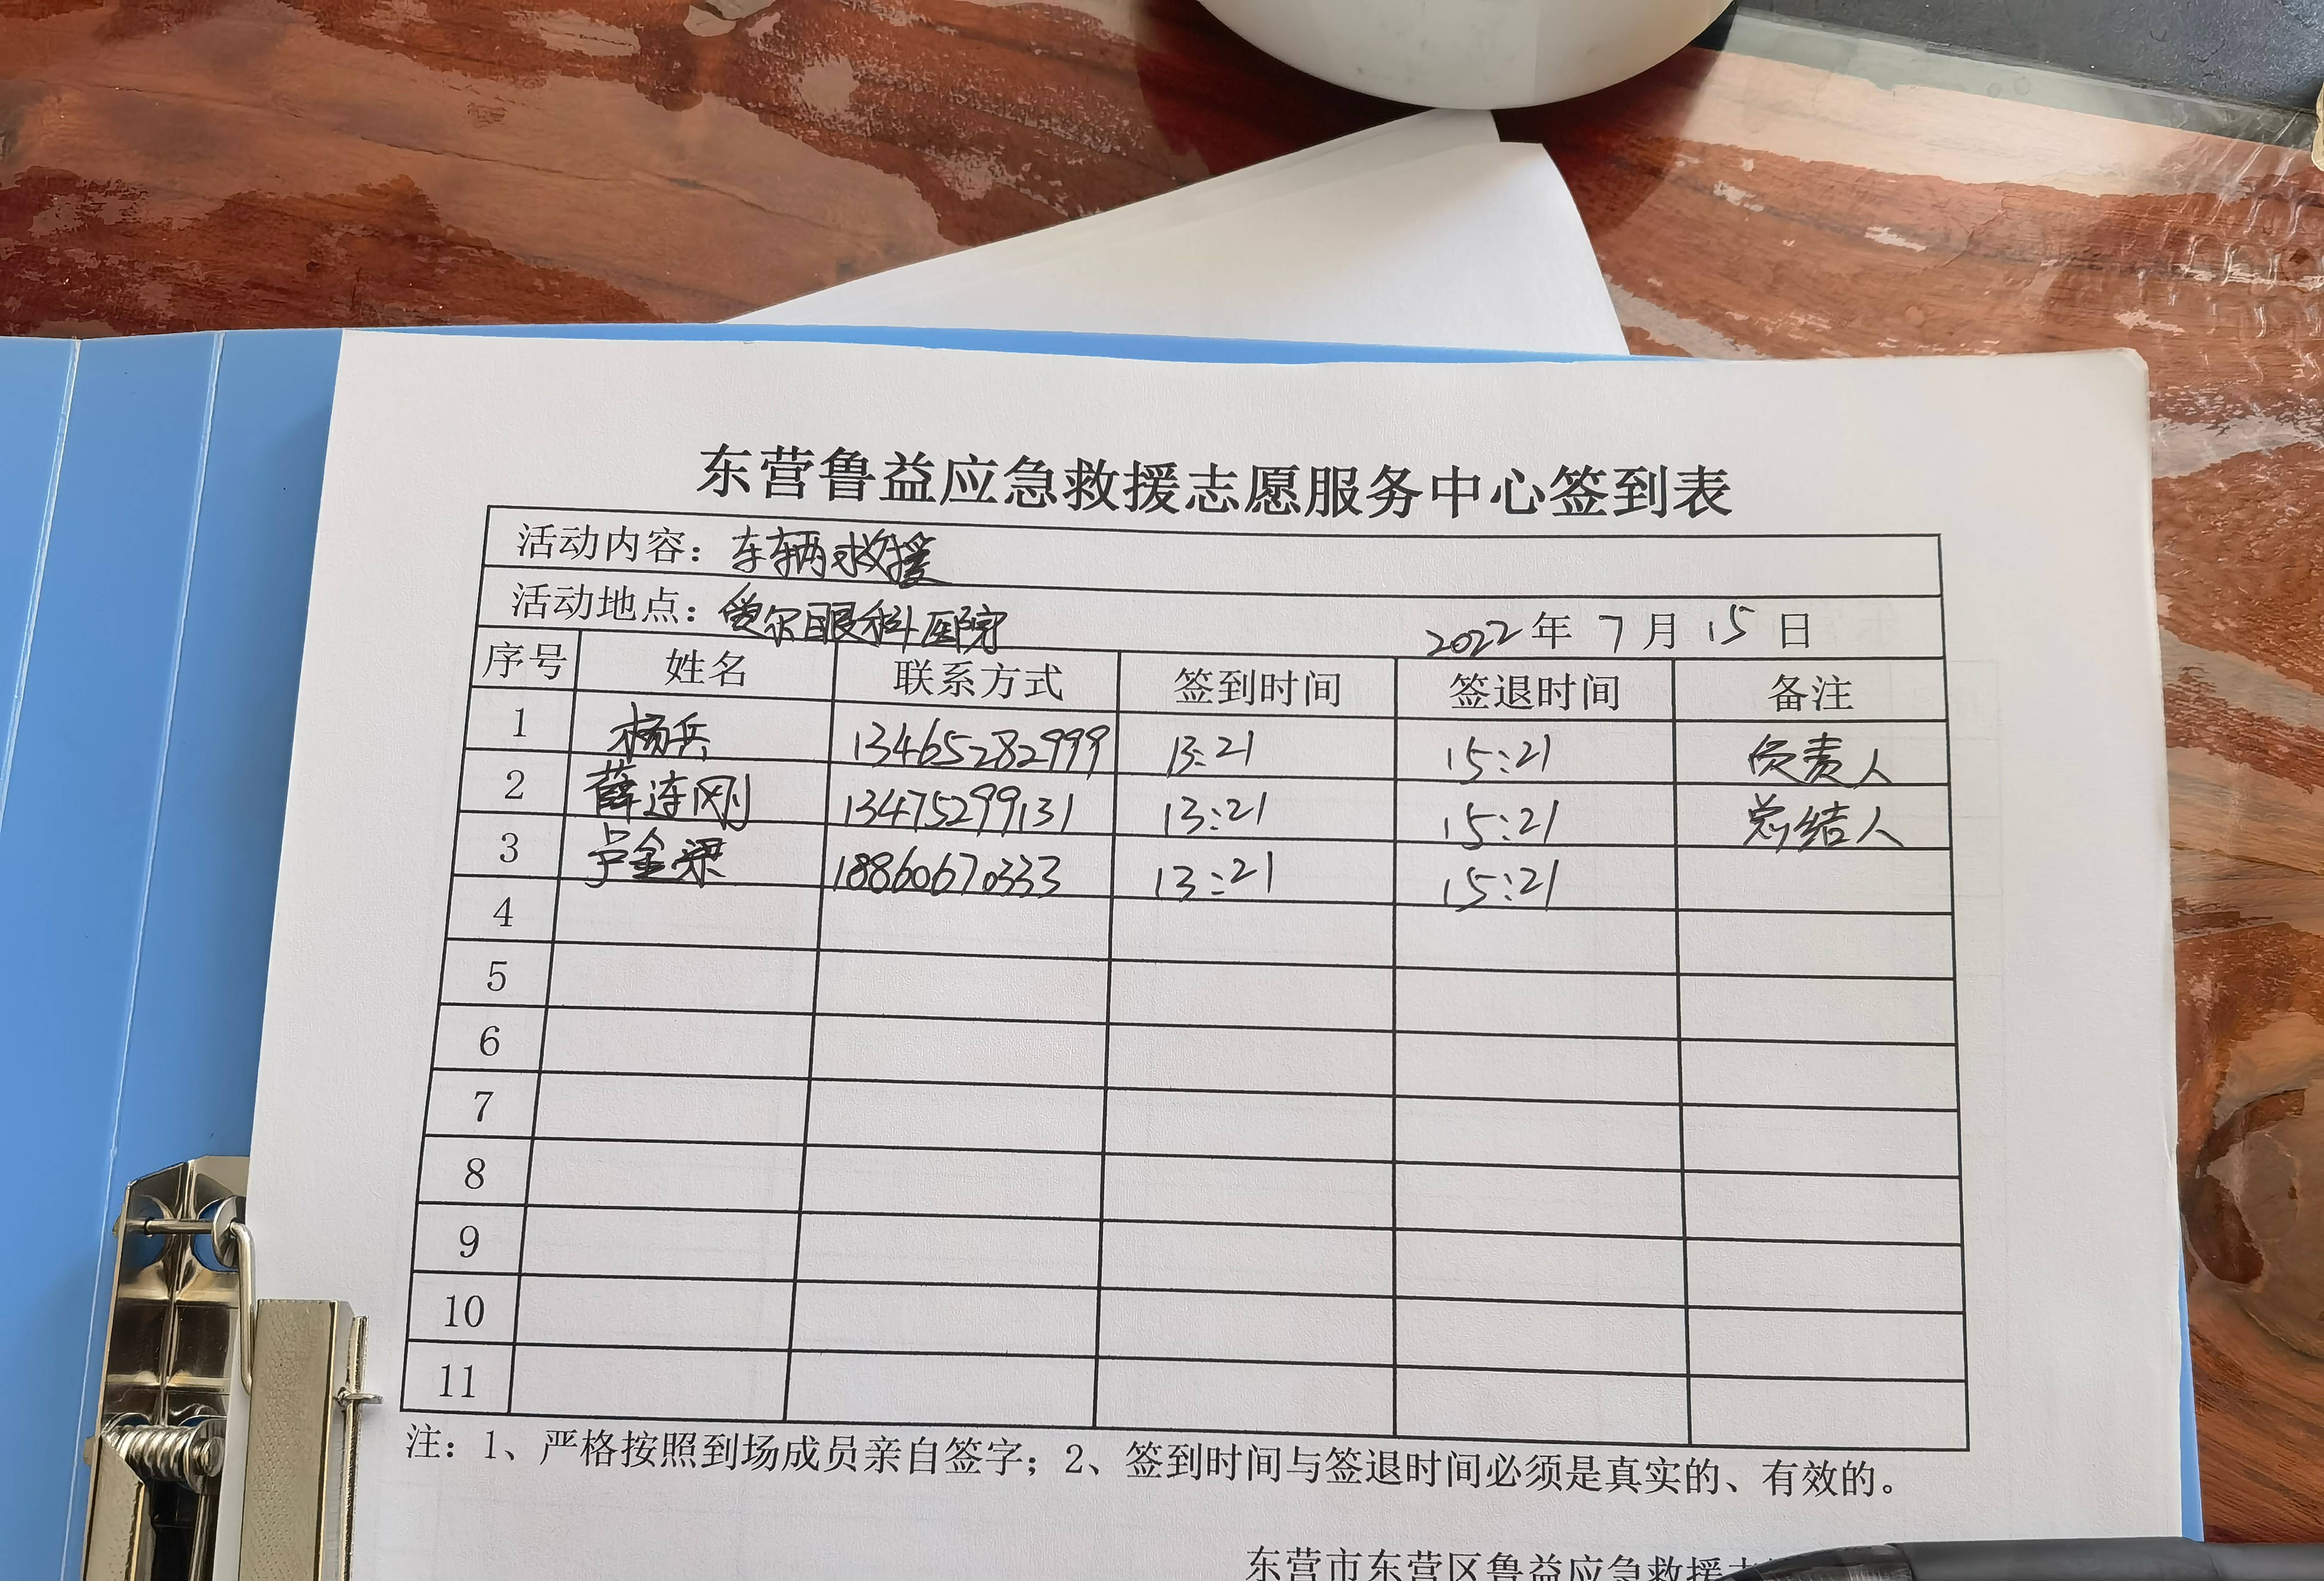 东营鲁益应急救援志愿服务中心签到表
活动内容：车辆救援
活动地点：爱尔眼科医院 2022年7月15日
序号 姓名 联系方式 签到时间 签退时间 备注
1 杨兵 13465282999 13:21 15:21 负责人
2 薛连刚 13475299131 13:21 15:21 总结人
3 金梁 18860670333 13:21 15:21
4
5
6
7
8
9
10
11
注：1、严格按照到场成员亲自签字；2、签到时间与签退时间必须是真实的、有效的。
东营市东营区鲁益应急救援